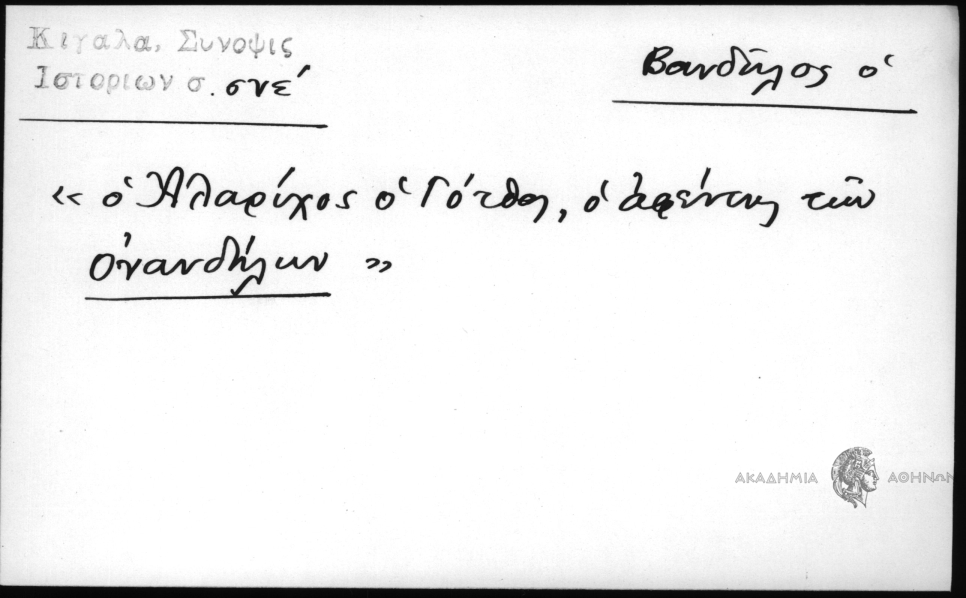 Κιγαλα, Συνοψις
Ιστοριων σ. σνέ
Βανδῆλος ὁ
« ὁ Ἀλαρίχος ὁ Γότθος, ὁ ἀφέντης τῶν
Οὐανδήλων »
ΑΚΑΔΗΜΙΑ ΑΘΗΝΩΝ